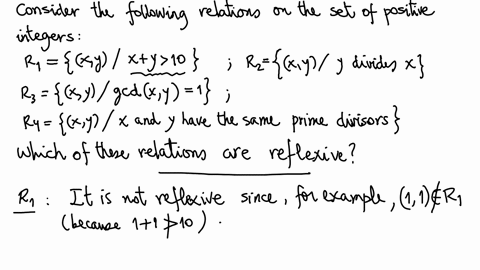 Consider the following relations on the set of positive
integers:
R₁ = {(x,y) / x+y>10} ; R₂={(x,y)/ y divides x}
R₃ = {(x,y)/gcd(x,y) = 1} ;
R₄ = {(x,y)/ x and y have the same prime divisors}
Which of these relations are reflexive?
R₁ : It is not reflexive since, for example, (1,1)∉R₁
(because 1+1≯10).